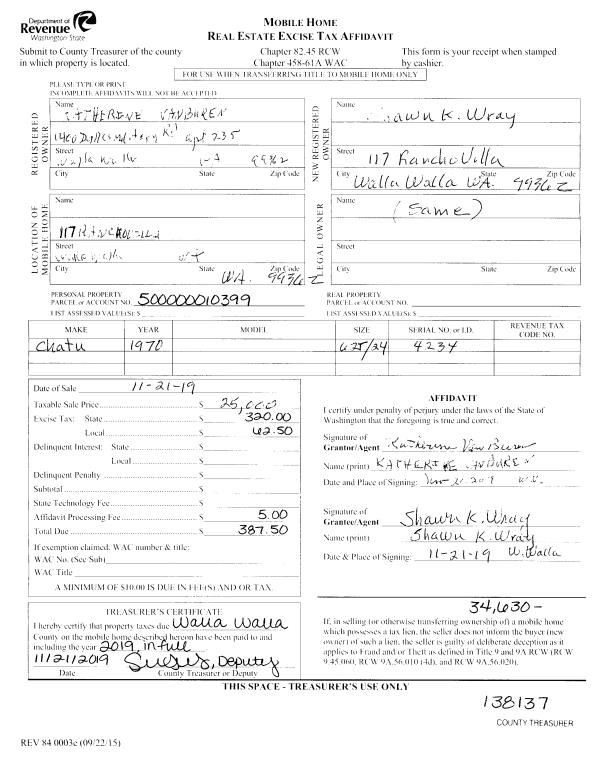 Department of
Revenue
Washington State
MOBILE HOME
REAL ESTATE EXCISE TAX AFFIDAVIT
Submit to County Treasurer of the county
in which property is located.
Chapter 82.45 RCW
Chapter 458-61A WAC
This form is your receipt when stamped
by cashier.
FOR USE WHEN TRANSFERRING TITLE TO MOBILE HOME ONLY
PLEASE TYPE OR PRINT
INCOMPLETE AFFIDAVITS WILL NOT BE ACCEPTED
REGISTERED OWNER
Name
VANBUREN
apt 235
Street
99362
City State Zip Code
NEW REGISTERED OWNER
Name
Shawn K. Wray
Street
117 Rancho Villa
Walla Walla WA. 99362
City State Zip Code
LOCATION OF MOBILE HOME
Name
117
Street
WA. 99362
City State Zip Code
LEGAL OWNER
Name
(Same)
Street
City State Zip Code
PERSONAL PROPERTY
PARCEL or ACCOUNT NO. 500000010399
LIST ASSESSED VALUE(S): $
REAL PROPERTY
PARCEL or ACCOUNT NO.
LIST ASSESSED VALUE(S): $
MAKE YEAR MODEL SIZE SERIAL NO. or I.D. REVENUE TAX CODE NO.
Chatu 1970 4234
Date of Sale 11-21-19
Taxable Sale Price $ 25,000
Excise Tax: State $ 320.00
Local $ 62.50
Delinquent Interest: State $
Local $
Delinquent Penalty $
Subtotal $
State Technology Fee $
Affidavit Processing Fee $ 5.00
Total Due $ 387.50
If exemption claimed, WAC number & title:
WAC No. (Sec/Sub)
WAC Title
A MINIMUM OF $10.00 IS DUE IN FEE(S) AND OR TAX.
AFFIDAVIT
I certify under penalty of perjury under the laws of the State of
Washington that the foregoing is true and correct.
Signature of
Grantor/Agent Katherine Van Buren
Name (print)
Date and Place of Signing:
Signature of
Grantee/Agent Shawn K. Wray
Name (print) Shawn K. Wray
Date & Place of Signing: 11-21-19 W. Walla
TREASURER'S CERTIFICATE
I hereby certify that property taxes due Walla Walla
County on the mobile home described hereon have been paid to and
including the year 2019 in full
11/21/2019 Deputy
Date County Treasurer or Deputy
34,630-
If, in selling (or otherwise transferring ownership of) a mobile home
which possesses a tax lien, the seller does not inform the buyer (new
owner) of such a lien, the seller is guilty of deliberate deception as it
applies to Fraud and or Theft as defined in Title 9 and 9A RCW (RCW
9.45.060, RCW 9A.56.010 (4d), and RCW 9A.56.020).
THIS SPACE - TREASURER'S USE ONLY
138137
COUNTY TREASURER
REV 84 0003c (09/22/15)